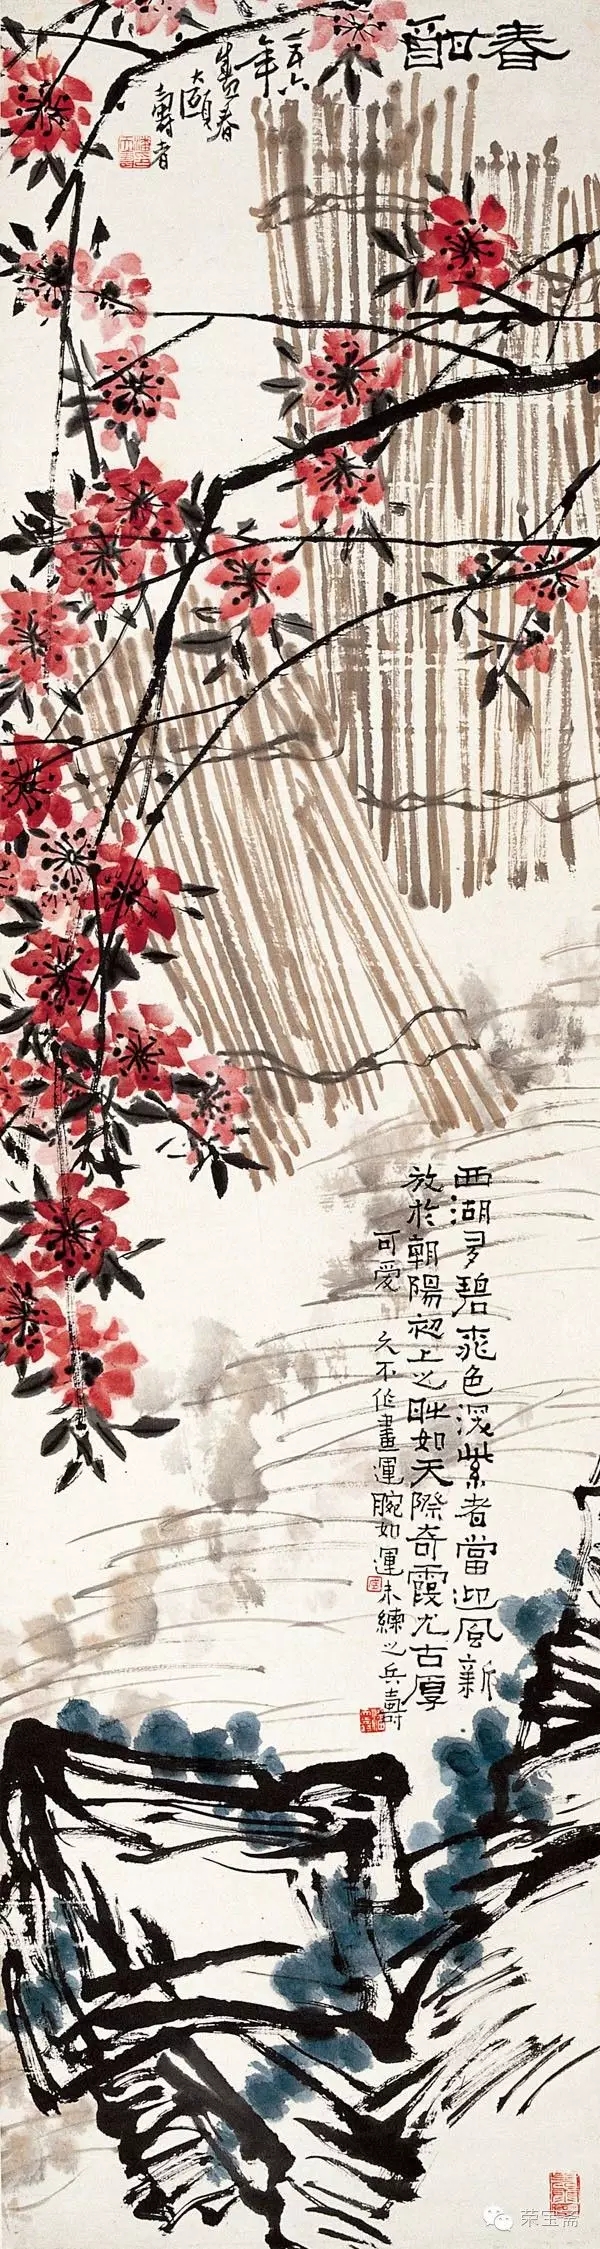 春酣
五六
年
盛春
大頤
壽者
西湖多碧桃色深紫者當迎風新
放於朝陽初上之時如天際奇霞尤古厚
可愛 久不作畫運腕如運未練之兵壽
荣宝斋